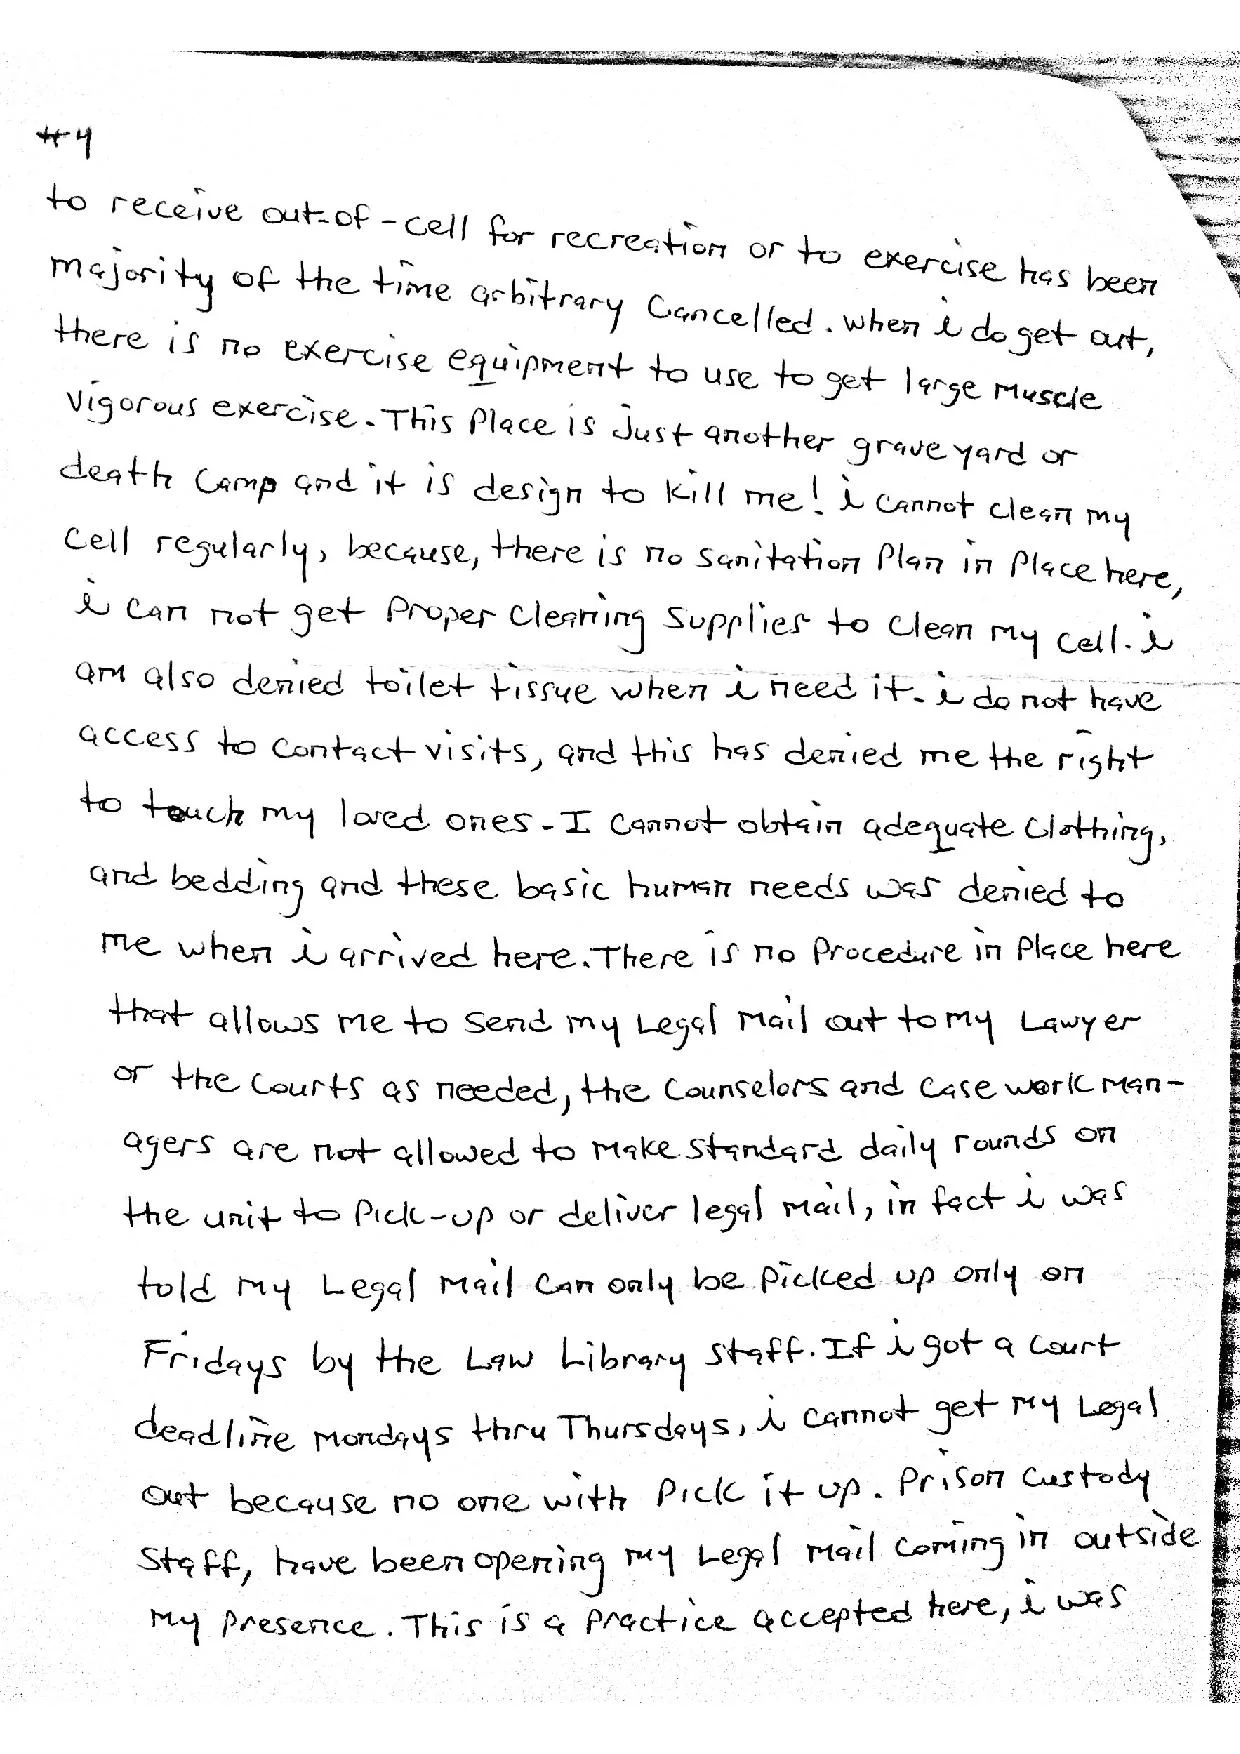 #4
to receive out-of-cell for recreation or to exercise has been
majority of the time arbitrary cancelled. when i do get out,
there is no exercise equipment to use to get large muscle
vigorous exercise. This Place is just another grave yard or
death camp and it is design to kill me! i cannot clean my
cell regularly, because, there is no sanitation Plan in Place here,
i can not get Proper cleaning supplies to clean my cell. i
am also denied toilet tissue when i need it. i do not have
access to contact visits, and this has denied me the right
to touch my loved ones. I cannot obtain adequate clothing,
and bedding and these basic human needs was denied to
me when i arrived here. There is no Procedure in Place here
that allows me to send my Legal Mail out to my Lawyer
or the courts as needed, the counselors and case work man-
agers are not allowed to make standard daily rounds on
the unit to Pick-up or deliver legal mail, in fact i was
told my Legal Mail can only be picked up only on
Fridays by the Law Library staff. If i got a court
deadline mondays thru Thursdays, i cannot get my Legal
out because no one with Pick it up. Prison custody
staff, have been opening my Legal mail coming in outside
my presence. This is a practice accepted here, i was